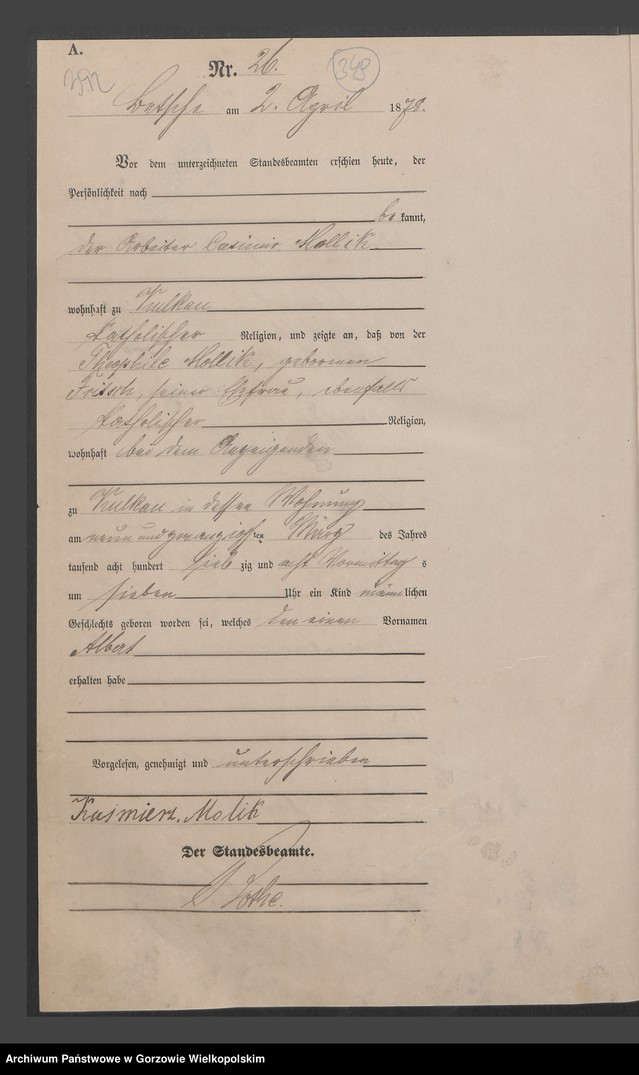 A.
392
Nr. 26.
348
Betsche am 2. April 1878.
Vor dem unterzeichneten Standesbeamten erschien heute, der
Persönlichkeit nach
bekannt,
der Arbeiter Casimir Mollik
wohnhaft zu Kulkau
katholischer Religion, und zeigte an, daß von der
Theophile Mollik, geborenen
Fritsch, seiner Ehefrau, ebenfalls
katholischer Religion,
wohnhaft bei dem Anzeigenden
zu Kulkau in dessen Wohnung
am neun und zwanzigsten März des Jahres
tausend acht hundert siebzig und acht Vormittags
um sieben Uhr ein Kind männlichen
Geschlechts geboren worden sei, welches den einen Vornamen
Albert
erhalten habe
Vorgelesen, genehmigt und unterschrieben
Kasmierz. Molik
Der Standesbeamte.
Archiwum Państwowe w Gorzowie Wielkopolskim